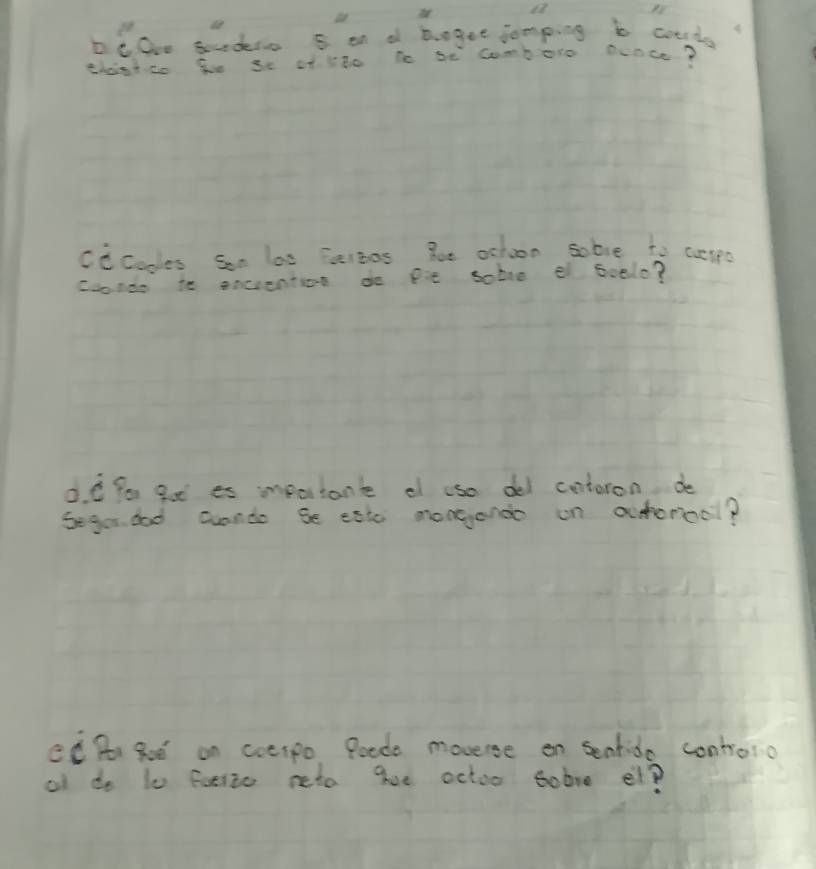 b. ¿Que sucederia si en el bungee jomping la cuerda
elastica que se utiliza no se cambiara nunca?
c ¿Cuales son las fuerzas que actuan sobre tu cuerpo
cuando te encuentras de pie sobre el suelo?
d. ¿Por qué es importante el uso del cinturon de
seguridad cuando se está manejando un automovil?
e ¿Por qué un cuerpo puede moverse en sentido contrario
al de la fuerza neta que actua sobre él?